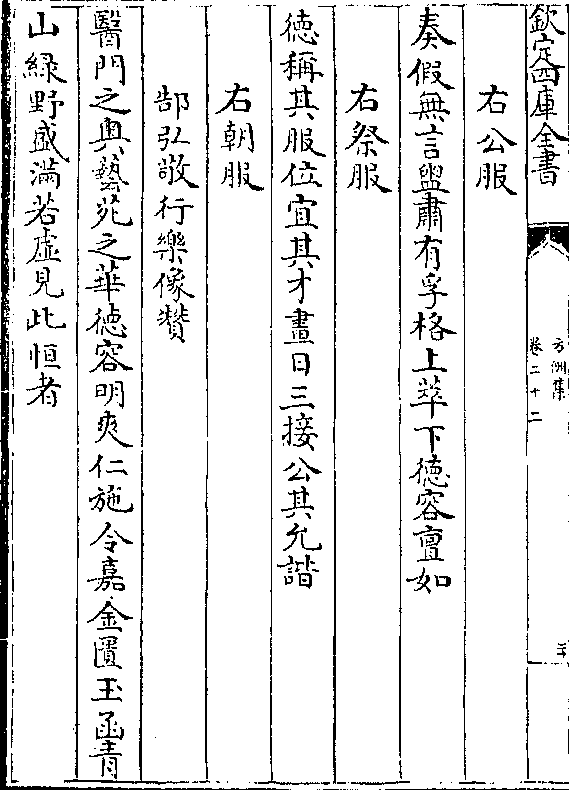 欽定四庫全書
方洲集
卷二十二
三十
右公服
奏假無言盥肅有孚格上萃下徳容亶如
右祭服
徳稱其服位宜其才晝日三接公其允諧
右朝服
郜弘敬行樂像贊
醫門之奥藝苑之華徳容明爽仁施令嘉金匱玉函青
山緑野盛滿若虚見此恒者